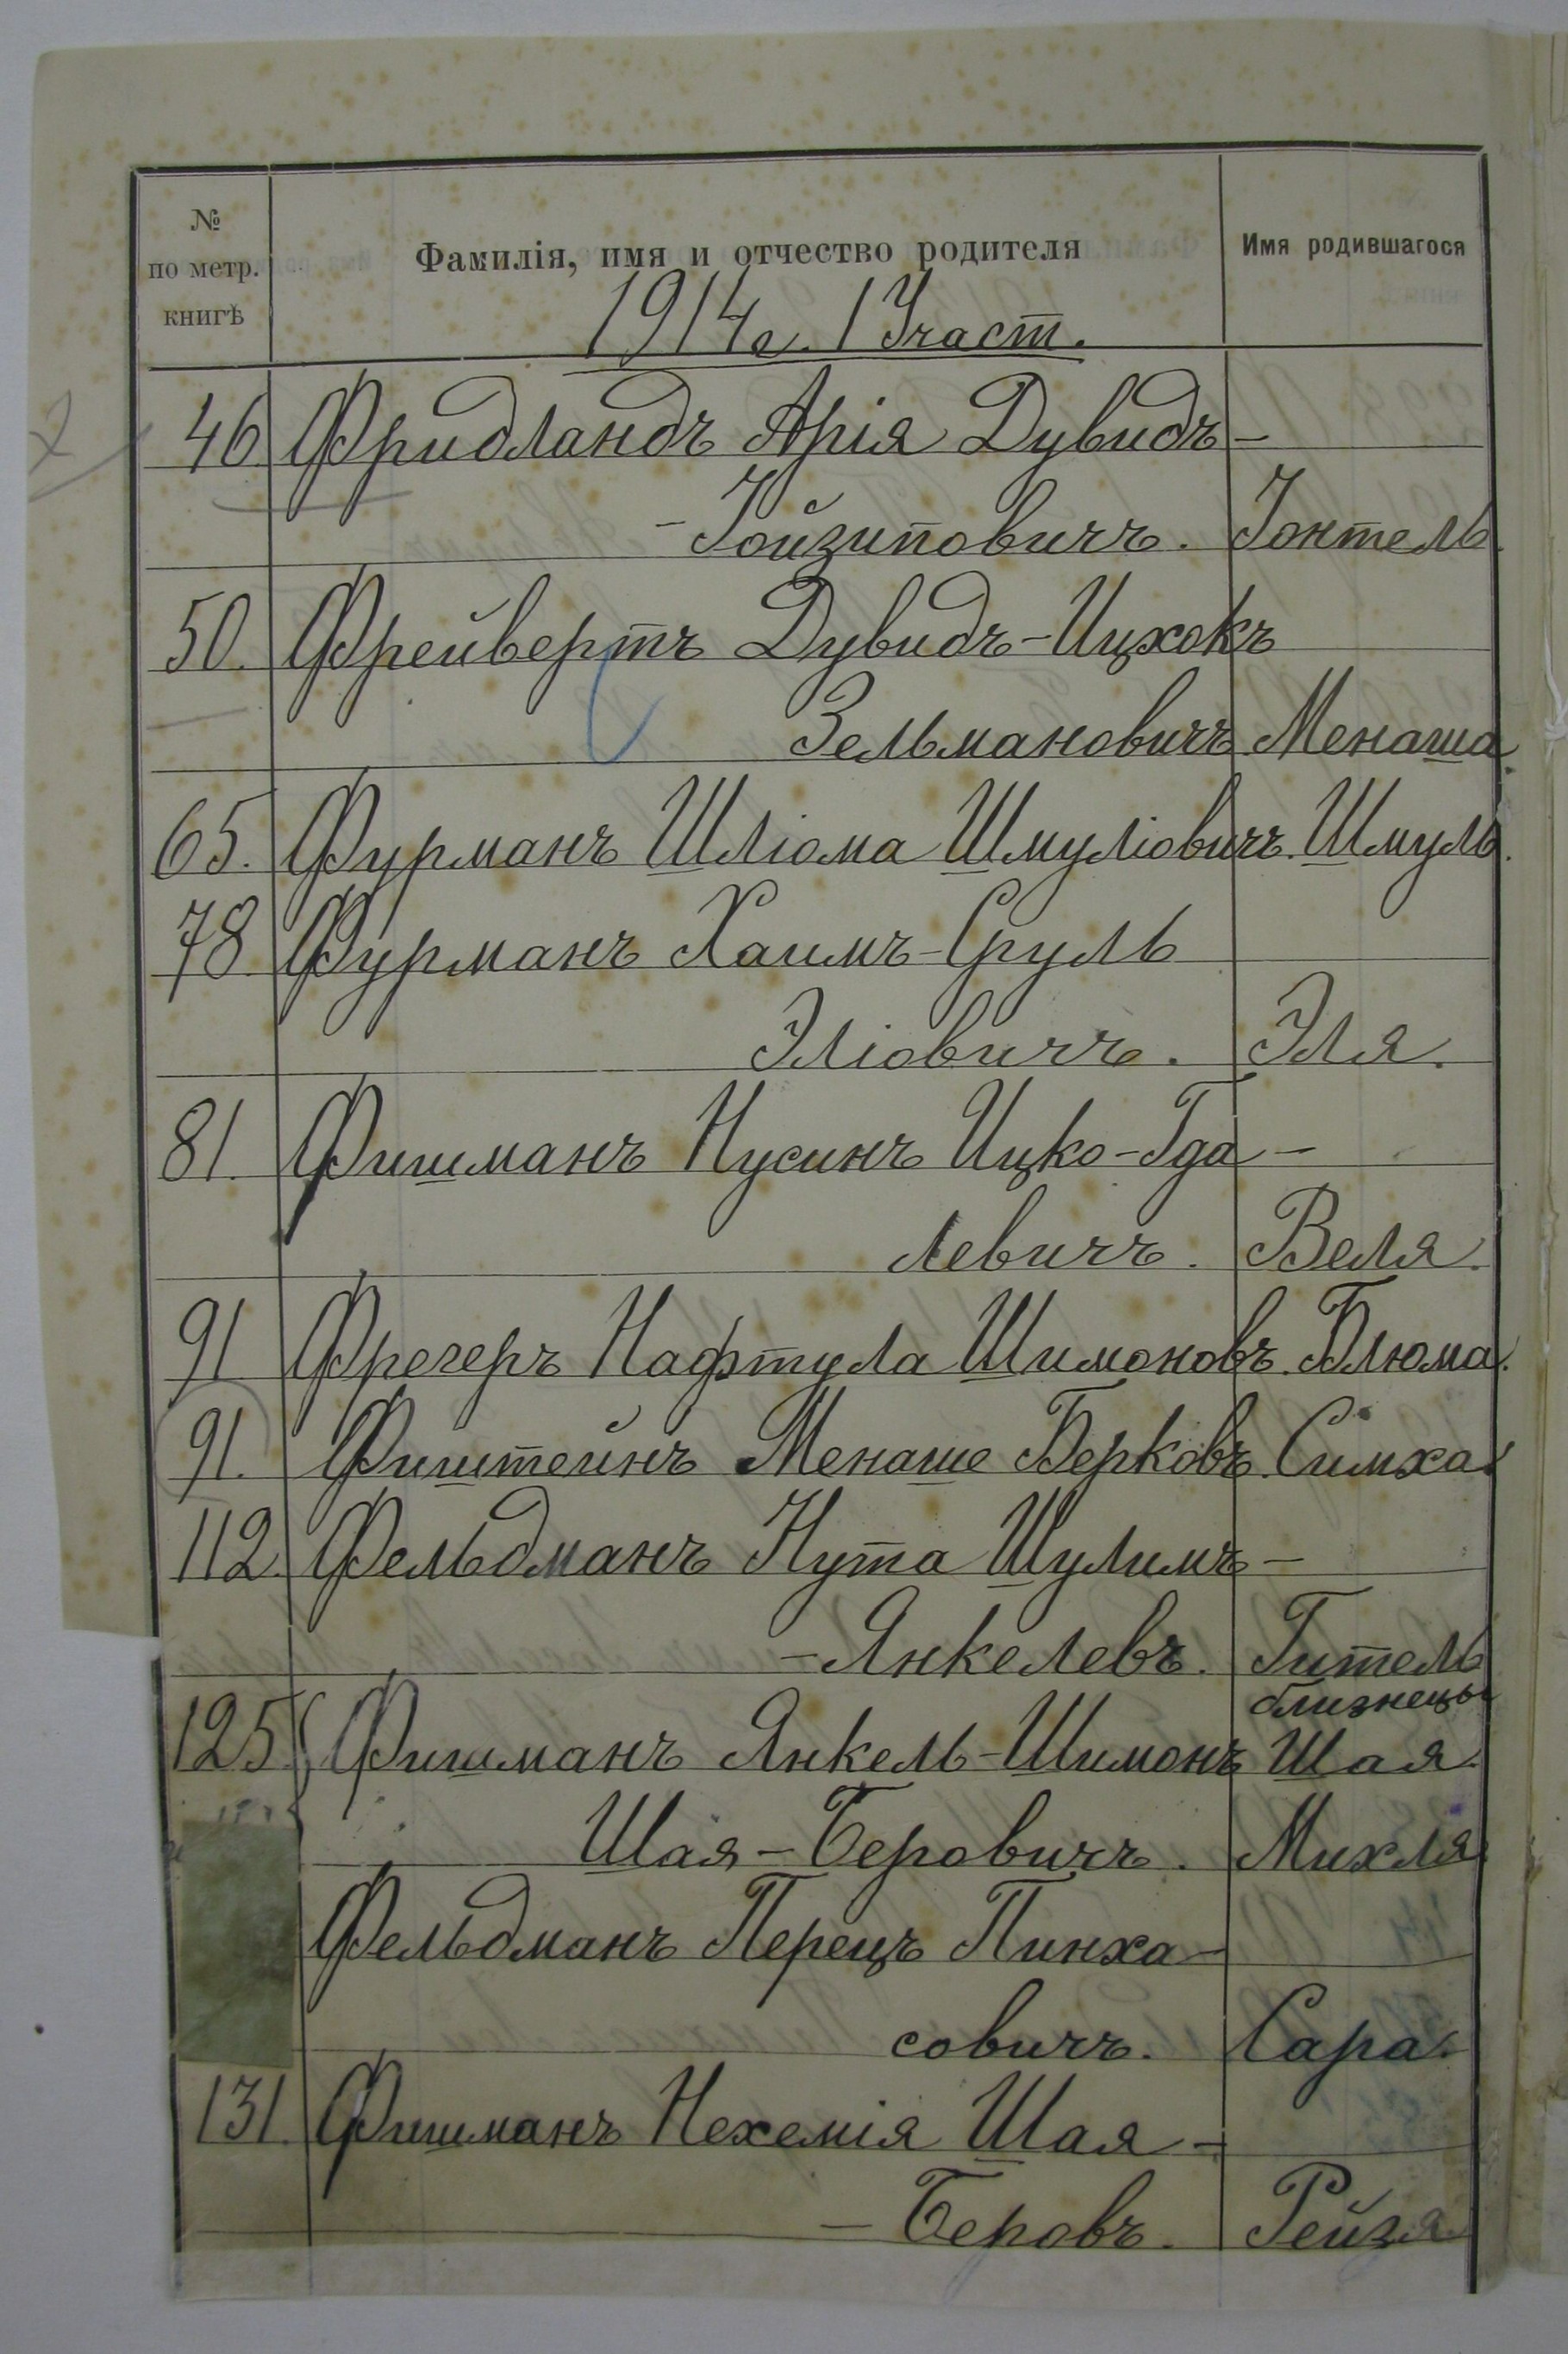 № по метр. книгѣ
Фамилія, имя и отчество родителя
Имя родившагося
1914 г. 1 Участ.
46 Фридландъ Арія Дувидъ-
-Іойзиповичъ. Іонтель.
50. Фрейвертъ Дувидъ-Ицхокъ
Зельмановичъ Менаша.
65. Фурманъ Шліома Шмуліовичъ. Шмуль.
78 Фурманъ Хаимъ-Сруль
Эліовичъ. Эля.
81. Фишманъ Нусинъ Ицко-Гда-
левичъ. Веля.
91 Фречеръ Нафтула Шимоновъ. Блюма.
91. Фиштейнъ Менаше Берковъ. Симха.
112. Фельдманъ Нута Шулимъ-
-Янкелевъ. Гитель
близнецы
125. Фишманъ Янкель-Шимонъ Шая.
Шая-Беровичъ. Михля
Фельдманъ Перецъ Пинха-
совичъ. Сара.
131. Фишманъ Нехемія Шая-
-Беровъ. Рейзя.